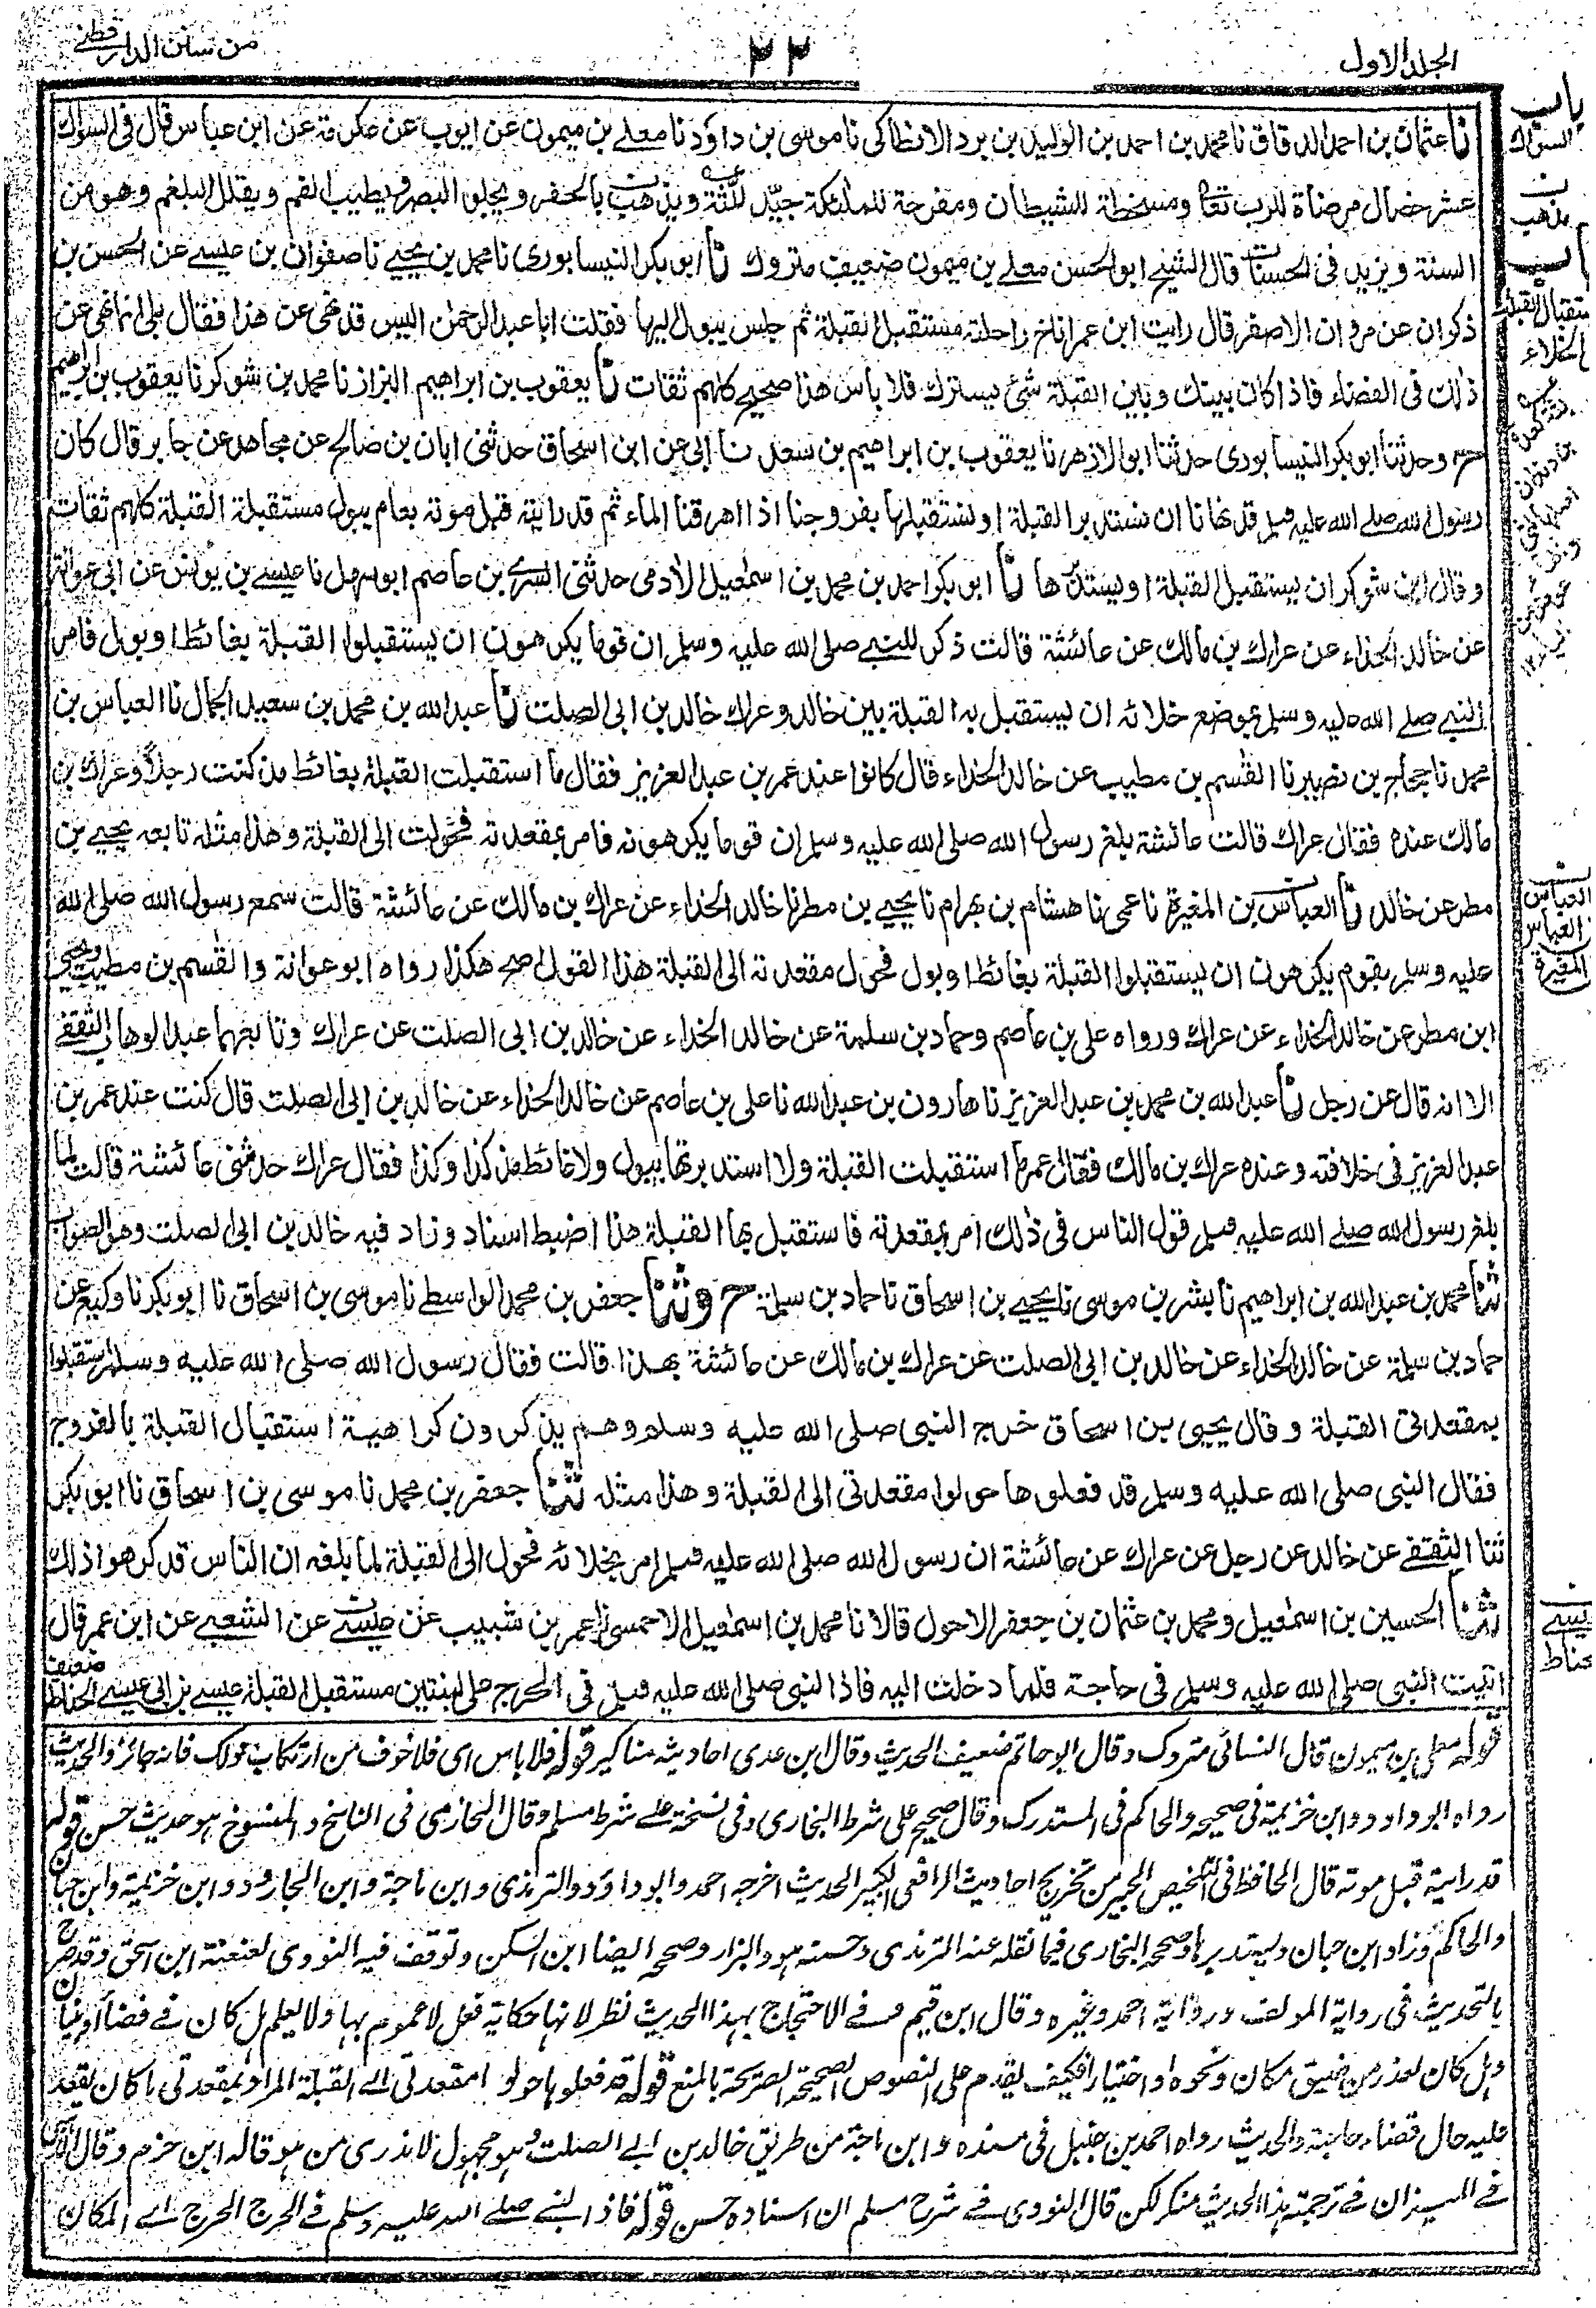 الجلد الاول
٢٢
من سنن الدارقطني
باب السواك
نا عثمان بن احمد الدقاق نا محمد بن احمد بن الوليد بن برد الانطاكي نا موسى بن داؤد نا معلے بن ميمون عن ايوب عن عكرمة عن ابن عباس قال في السواك
عشر خصال مرضاة للرب تعالى ومسخطة للشيطان ومفرحة للملئكة جيّد للّثة ويذهب بالحفر ويجلو البصر ويطيب الفم ويقلل البلغم وهو من
السنة ويزيد في الحسنات قال الشيخ ابو الحسن معلے بن ميمون ضعيف متروك نا ابو بكر النيسابوري نا محمد بن يحيے نا صفوان بن عيسے عن الحسن بن
ذكوان عن مروان الاصفر قال رايت ابن عمر اناخ راحلته مستقبل القبلة ثم جلس يبول اليها فقلت ابا عبد الرحمن اليس قد نهى عن هذا فقال بلى انما نهى عن
ذلك في الفضاء فاذا كان بينك وبين القبلة شئ يسترك فلا باس هذا صحيح كلهم ثقات نا يعقوب بن ابراهيم البزاز نا محمد بن شوكر نا يعقوب بن ابراهيم
ح وحدثنا ابو بكر النيسابوري حدثنا ابو الازهر نا يعقوب بن ابراهيم بن سعد نا ابي عن ابن اسحاق حدثني ابان بن صالح عن مجاهد عن جابر قال كان
رسول الله صلے الله عليه وسلم قد نهانا ان نستدبر القبلة او نستقبلها بفروجنا اذا اهرقنا الماء ثم قد رايته قبل موته بعام يبول مستقبلة القبلة كلهم ثقات
وقال ابن شوكر ان يستقبل القبلة او يستدبرها نا ابو بكر احمد بن محمد بن اسمعيل الادمي حدثني السرے بن عاصم ابو سهل نا عيسے بن يونس عن ابي عوانة
عن خالد الحذاء عن عراك بن مالك عن عائشة قالت ذكر للنبے صلى الله عليه وسلم ان قوما يكرهون ان يستقبلوا القبلة بغائط او بول فامر
النبے صلے الله عليه وسلم بموضع خلائه ان يستقبل به القبلة بين خالد وعراك خالد بن ابي الصلت نا عبد الله بن محمد بن سعيد الجمال نا العباس بن
محمد نا حجاج بن نصير نا القسم بن مطيب عن خالد الحذاء قال كانوا عند عمر بن عبد العزيز فقال ما استقبلت القبلة بغائط مذ كنت رجلاً وعراك بن
مالك عنده فقال عراك قالت عائشة بلغ رسول الله صلى الله عليه وسلم ان قوما يكرهونه فامر بمقعدته فحولت الى القبلة وهذا مثله تابعه يحيے بن
مطر عن خالد نا العباس بن المغيرة نا عمي نا هشام بن بهرام نا يحيے بن مطر نا خالد الحذاء عن عراك بن مالك عن عائشة قالت سمع رسول الله صلى الله
عليه وسلم بقوم يكرهون ان يستقبلوا القبلة بغائط او بول فحول مقعدته الى القبلة هذا القول اصح هكذا رواه ابو عوانة والقسم بن مطيب ويحيى
ابن مطر عن خالد الحذاء عن عراك ورواه علي بن عاصم وحماد بن سلمة عن خالد الحذاء عن خالد بن ابي الصلت عن عراك وتابعهما عبد الوهاب الثقفے
الا انه قال عن رجل نا عبد الله بن محمد بن عبد العزيز نا هارون بن عبد الله نا علي بن عاصم عن خالد الحذاء عن خالد بن ابي الصلت قال كنت عند عمر بن
عبد العزيز في خلافته وعنده عراك بن مالك فقال عمر ما استقبلت القبلة ولا استدبرتها ببول ولا غائط مذ كذا وكذا فقال عراك حدثني عائشة قالت لما
بلغ رسول الله صلے الله عليه وسلم قول الناس في ذلك امر بمقعدته فاستقبل بها القبلة هذا اضبط اسناد وزاد فيه خالد بن ابي الصلت وهو الصواب
ثنا محمد بن عبد الله بن ابراهيم نا بشر بن موسى نا يحيے بن اسحاق نا حماد بن سلمة ح وثنا جعفر بن محمد الواسطے نا موسى بن اسحاق نا ابو بكر نا وكيع عن
حماد بن سلمة عن خالد الحذاء عن خالد بن ابي الصلت عن عراك بن مالك عن عائشة بهذا قالت فقال رسول الله صلى الله عليه وسلم استقبلوا
بمقعدتي القبلة وقال يحيى بن اسحاق خرج النبي صلى الله عليه وسلم وهم يذكرون كراهية استقبال القبلة بالفروج
فقال النبي صلى الله عليه وسلم قد فعلوها حولوا مقعدتي الى القبلة وهذا مثله ثنا جعفر بن محمد نا موسى بن اسحاق نا ابو بكر
ثنا الثقفے عن خالد عن رجل عن عراك عن عائشة ان رسول الله صلى الله عليه وسلم امر بخلائه فحول الى القبلة لما بلغه ان الناس قد كرهوا ذلك
ثنا الحسين بن اسمعيل ومحمد بن عثمان بن جعفر الاحول قالا نا محمد بن اسمعيل الاحمسي نا عمر بن شبيب عن عيسے عن الشعبے عن ابن عمر قال
اتيت النبي صلى الله عليه وسلم في حاجة فلما دخلت اليه فاذا النبي صلى الله عليه وسلم في الحرج على لبنتين مستقبل القبلة عيسے بن ابي عيسے الحناط ضعيف
قوله معلى بن ميمون قال النسائي متروك وقال ابو حاتم ضعيف الحديث وقال ابن عدي احاديثه مناكير قوله فلا باس اي فلا خوف من ارتكاب ذلك فانه جائز والحديث
رواه ابو داود وابن خزيمة في صحيحه والحاكم في المستدرك وقال صحيح على شرط البخاري وفي نسخة علے شرط مسلم وقال الحازمي في الناسخ والمنسوخ هو حديث حسن قوله
قد رايته قبل موته قال الحافظ في التلخيص الحبير من تخريج احاديث الرافعي الكبير الحديث اخرجه احمد وابو داؤد والترمذي وابن ماجة وابن الجارود وابن خزيمة وابن حبان
والحاكم وزاد ابن حبان ويستدبرها وصححه البخاري فيما نقله عنه الترمذي وحسنه هو والبزار وصححه ايضا ابن السكن وتوقف فيه النووي لعنعنة ابن اسحق وقد صرح
بالتحديث في رواية المولف ورواية احمد وغيره وقال ابن قيم وفے الاحتجاج بهذا الحديث نظر لانها حكاية فعل لا عموم بها ولا يعلم هل كان فے فضاء او بنيان
وهل كان لعذر من ضيق مكان ونحوه او اختيارا فكيف يقدم على النصوص الصحيحة الصريحة بالمنع قوله قد فعلوها حولوا مقعدتي الے القبلة المراد بمقعدتي ما كان يقعد
عليه حال قضاء حاجته والحديث رواه احمد بن حنبل في مسنده وابن ماجة من طريق خالد بن ابے الصلت وهو مجهول لا ندري من هو قاله ابن حزم وقال الذهبي
فے الميزان فے ترجمته هذا الحديث منكر لكن قال النووي فے شرح مسلم ان اسناده حسن قوله فاذا النبے صلے الله عليه وسلم فے الحرج الحرج اے المكان
يذهب
باب
القبلة
الخلاء
العباس
العباس
المغيرة